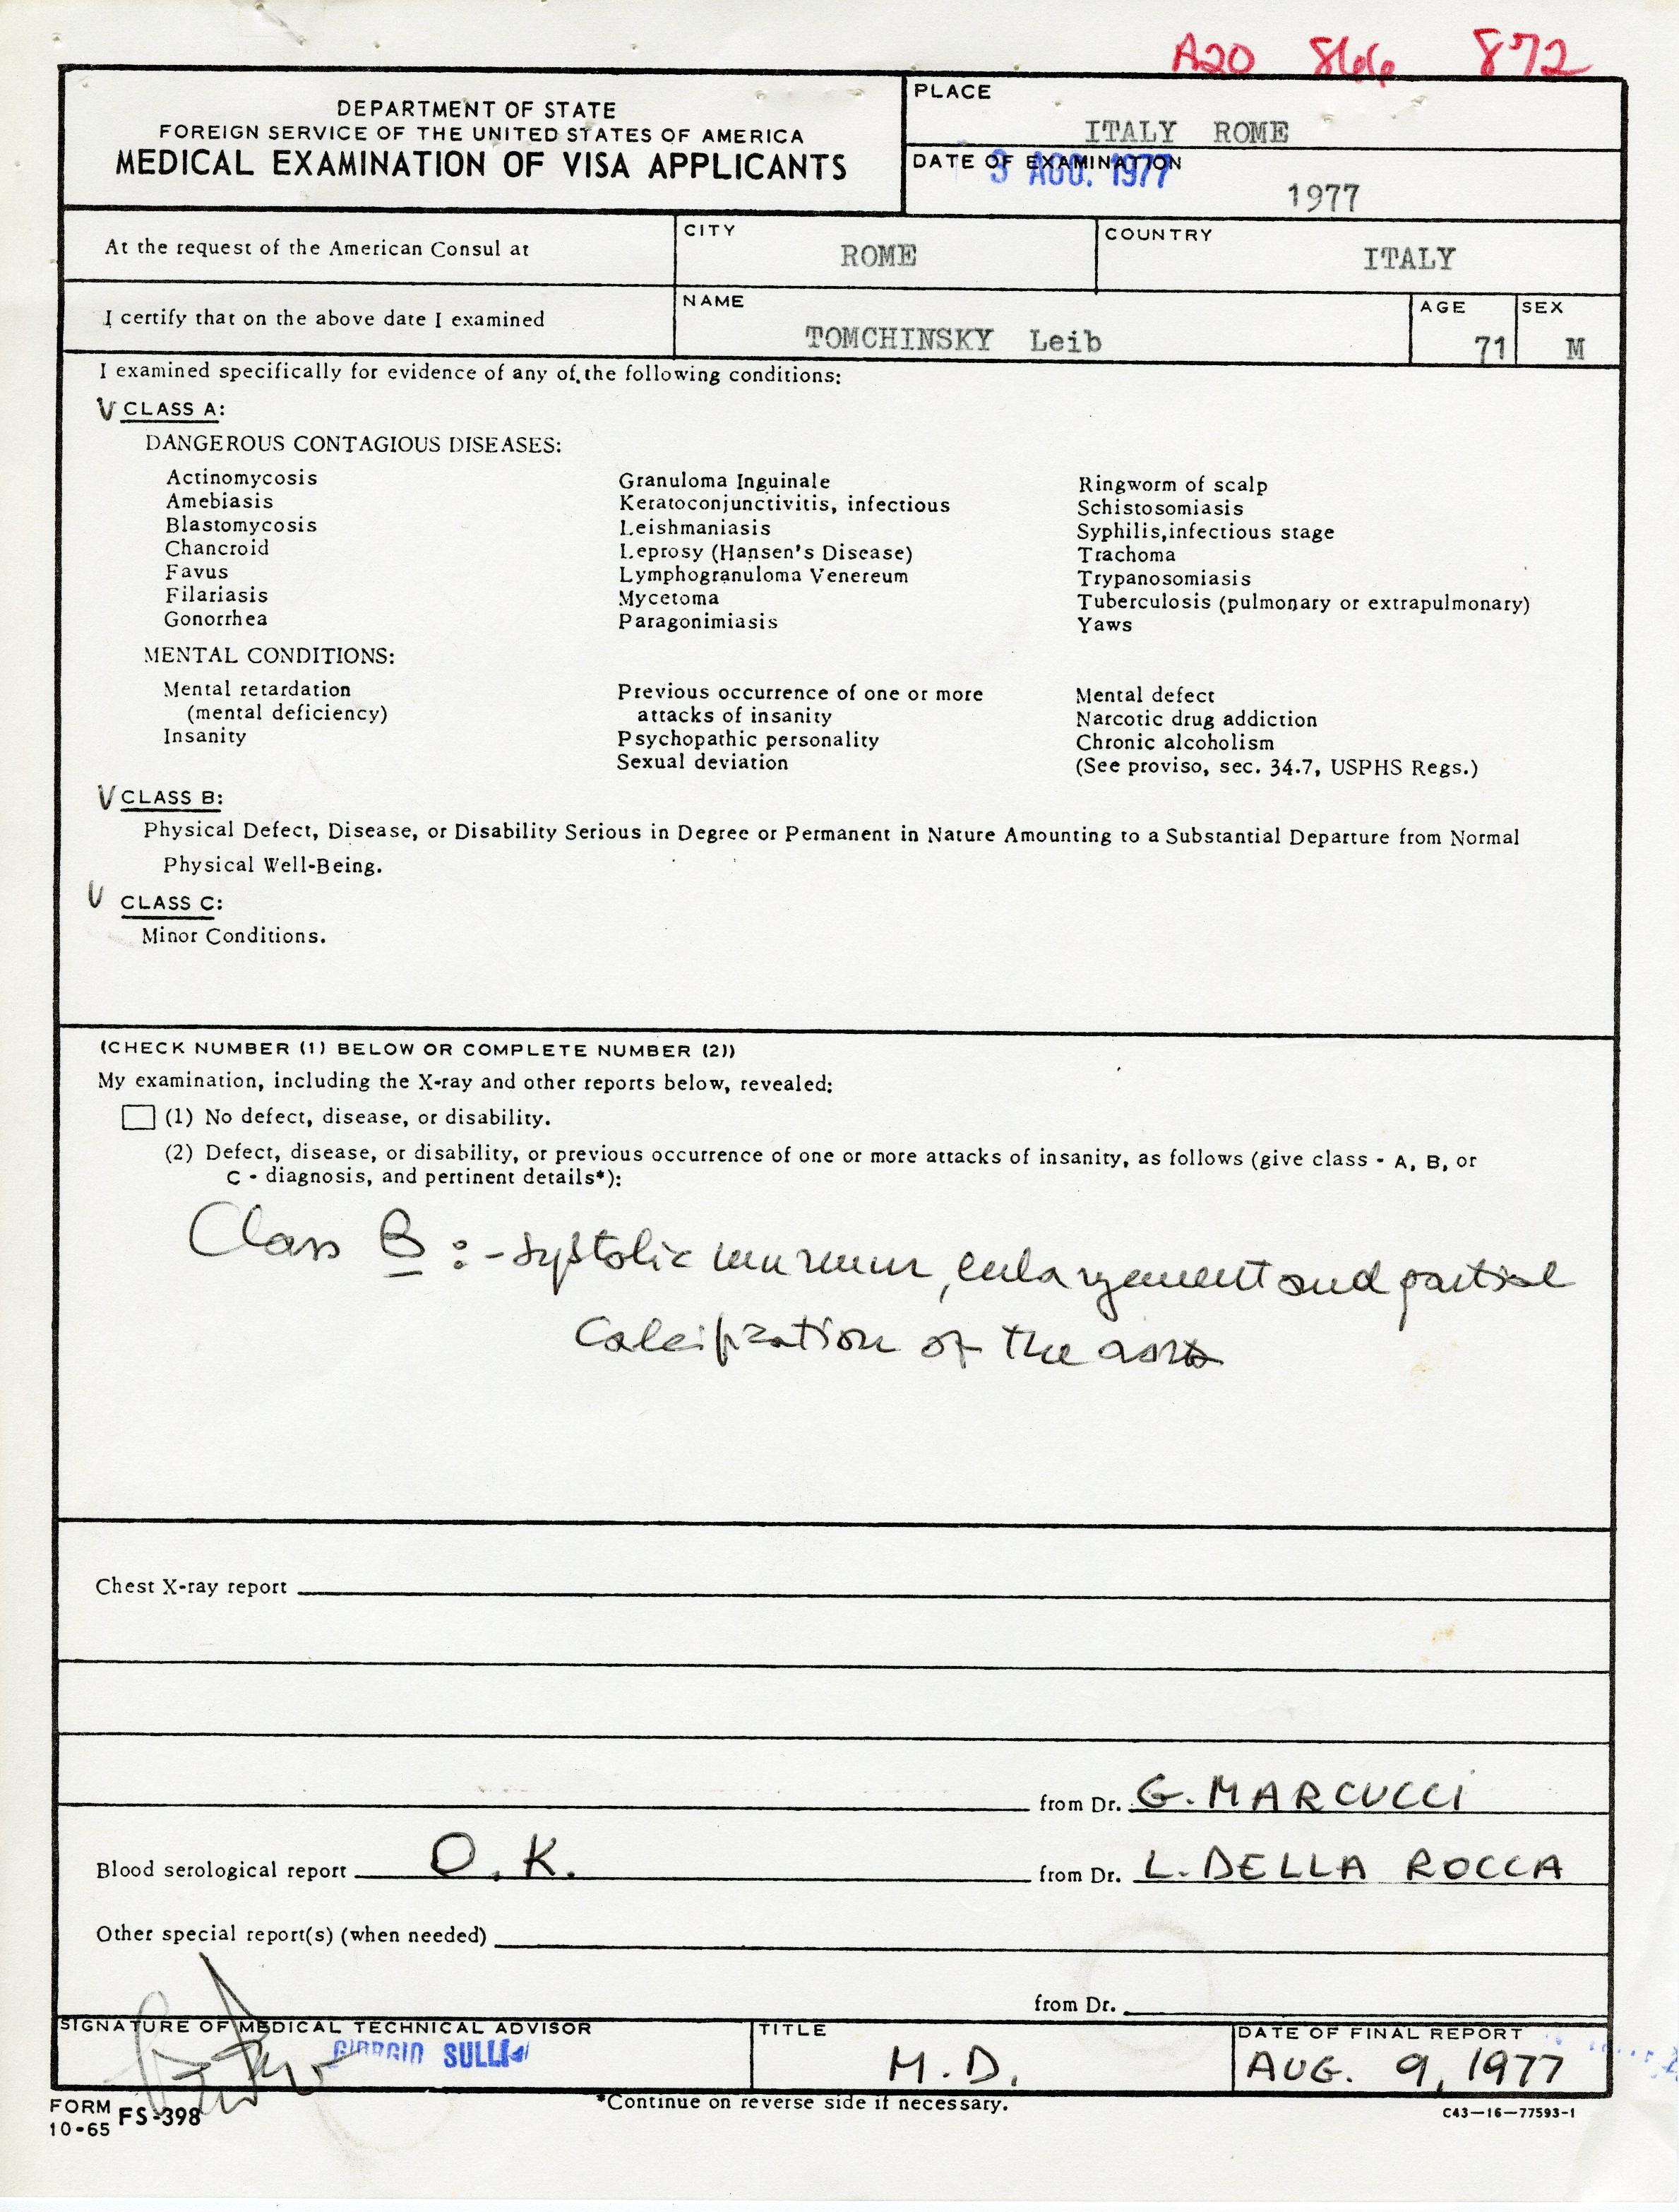 A20 866 872
DEPARTMENT OF STATE
FOREIGN SERVICE OF THE UNITED STATES OF AMERICA
MEDICAL EXAMINATION OF VISA APPLICANTS
PLACE
ITALY ROME
DATE OF EXAMINATION
3 AGO. 1977
1977
At the request of the American Consul at
CITY
ROME
COUNTRY
ITALY
I certify that on the above date I examined
NAME
TOMCHINSKY Leib
AGE
71
SEX
M
I examined specifically for evidence of any of the following conditions:
V CLASS A:
DANGEROUS CONTAGIOUS DISEASES:
Actinomycosis
Amebiasis
Blastomycosis
Chancroid
Favus
Filariasis
Gonorrhea
Granuloma Inguinale
Keratoconjunctivitis, infectious
Leishmaniasis
Leprosy (Hansen's Disease)
Lymphogranuloma Venereum
Mycetoma
Paragonimiasis
Ringworm of scalp
Schistosomiasis
Syphilis,infectious stage
Trachoma
Trypanosomiasis
Tuberculosis (pulmonary or extrapulmonary)
Yaws
MENTAL CONDITIONS:
Mental retardation
(mental deficiency)
Insanity
Previous occurrence of one or more
attacks of insanity
Psychopathic personality
Sexual deviation
Mental defect
Narcotic drug addiction
Chronic alcoholism
(See proviso, sec. 34.7, USPHS Regs.)
V CLASS B:
Physical Defect, Disease, or Disability Serious in Degree or Permanent in Nature Amounting to a Substantial Departure from Normal
Physical Well-Being.
V CLASS C:
Minor Conditions.
(CHECK NUMBER (1) BELOW OR COMPLETE NUMBER (2))
My examination, including the X-ray and other reports below, revealed:
(1) No defect, disease, or disability.
(2) Defect, disease, or disability, or previous occurrence of one or more attacks of insanity, as follows (give class - A, B, or
C - diagnosis, and pertinent details*):
Class B :- systolic murmur, enlargement and partial
calcification of the aorta
Chest X-ray report
from Dr. G. MARCUCCI
Blood serological report O.K. from Dr. L. DELLA ROCCA
Other special report(s) (when needed)
from Dr.
SIGNATURE OF MEDICAL TECHNICAL ADVISOR
GIORGIO SULLI
TITLE
M.D.
DATE OF FINAL REPORT
AUG. 9, 1977
*Continue on reverse side if necessary.
FORM
10-65 FS-398
C43-16-77593-1